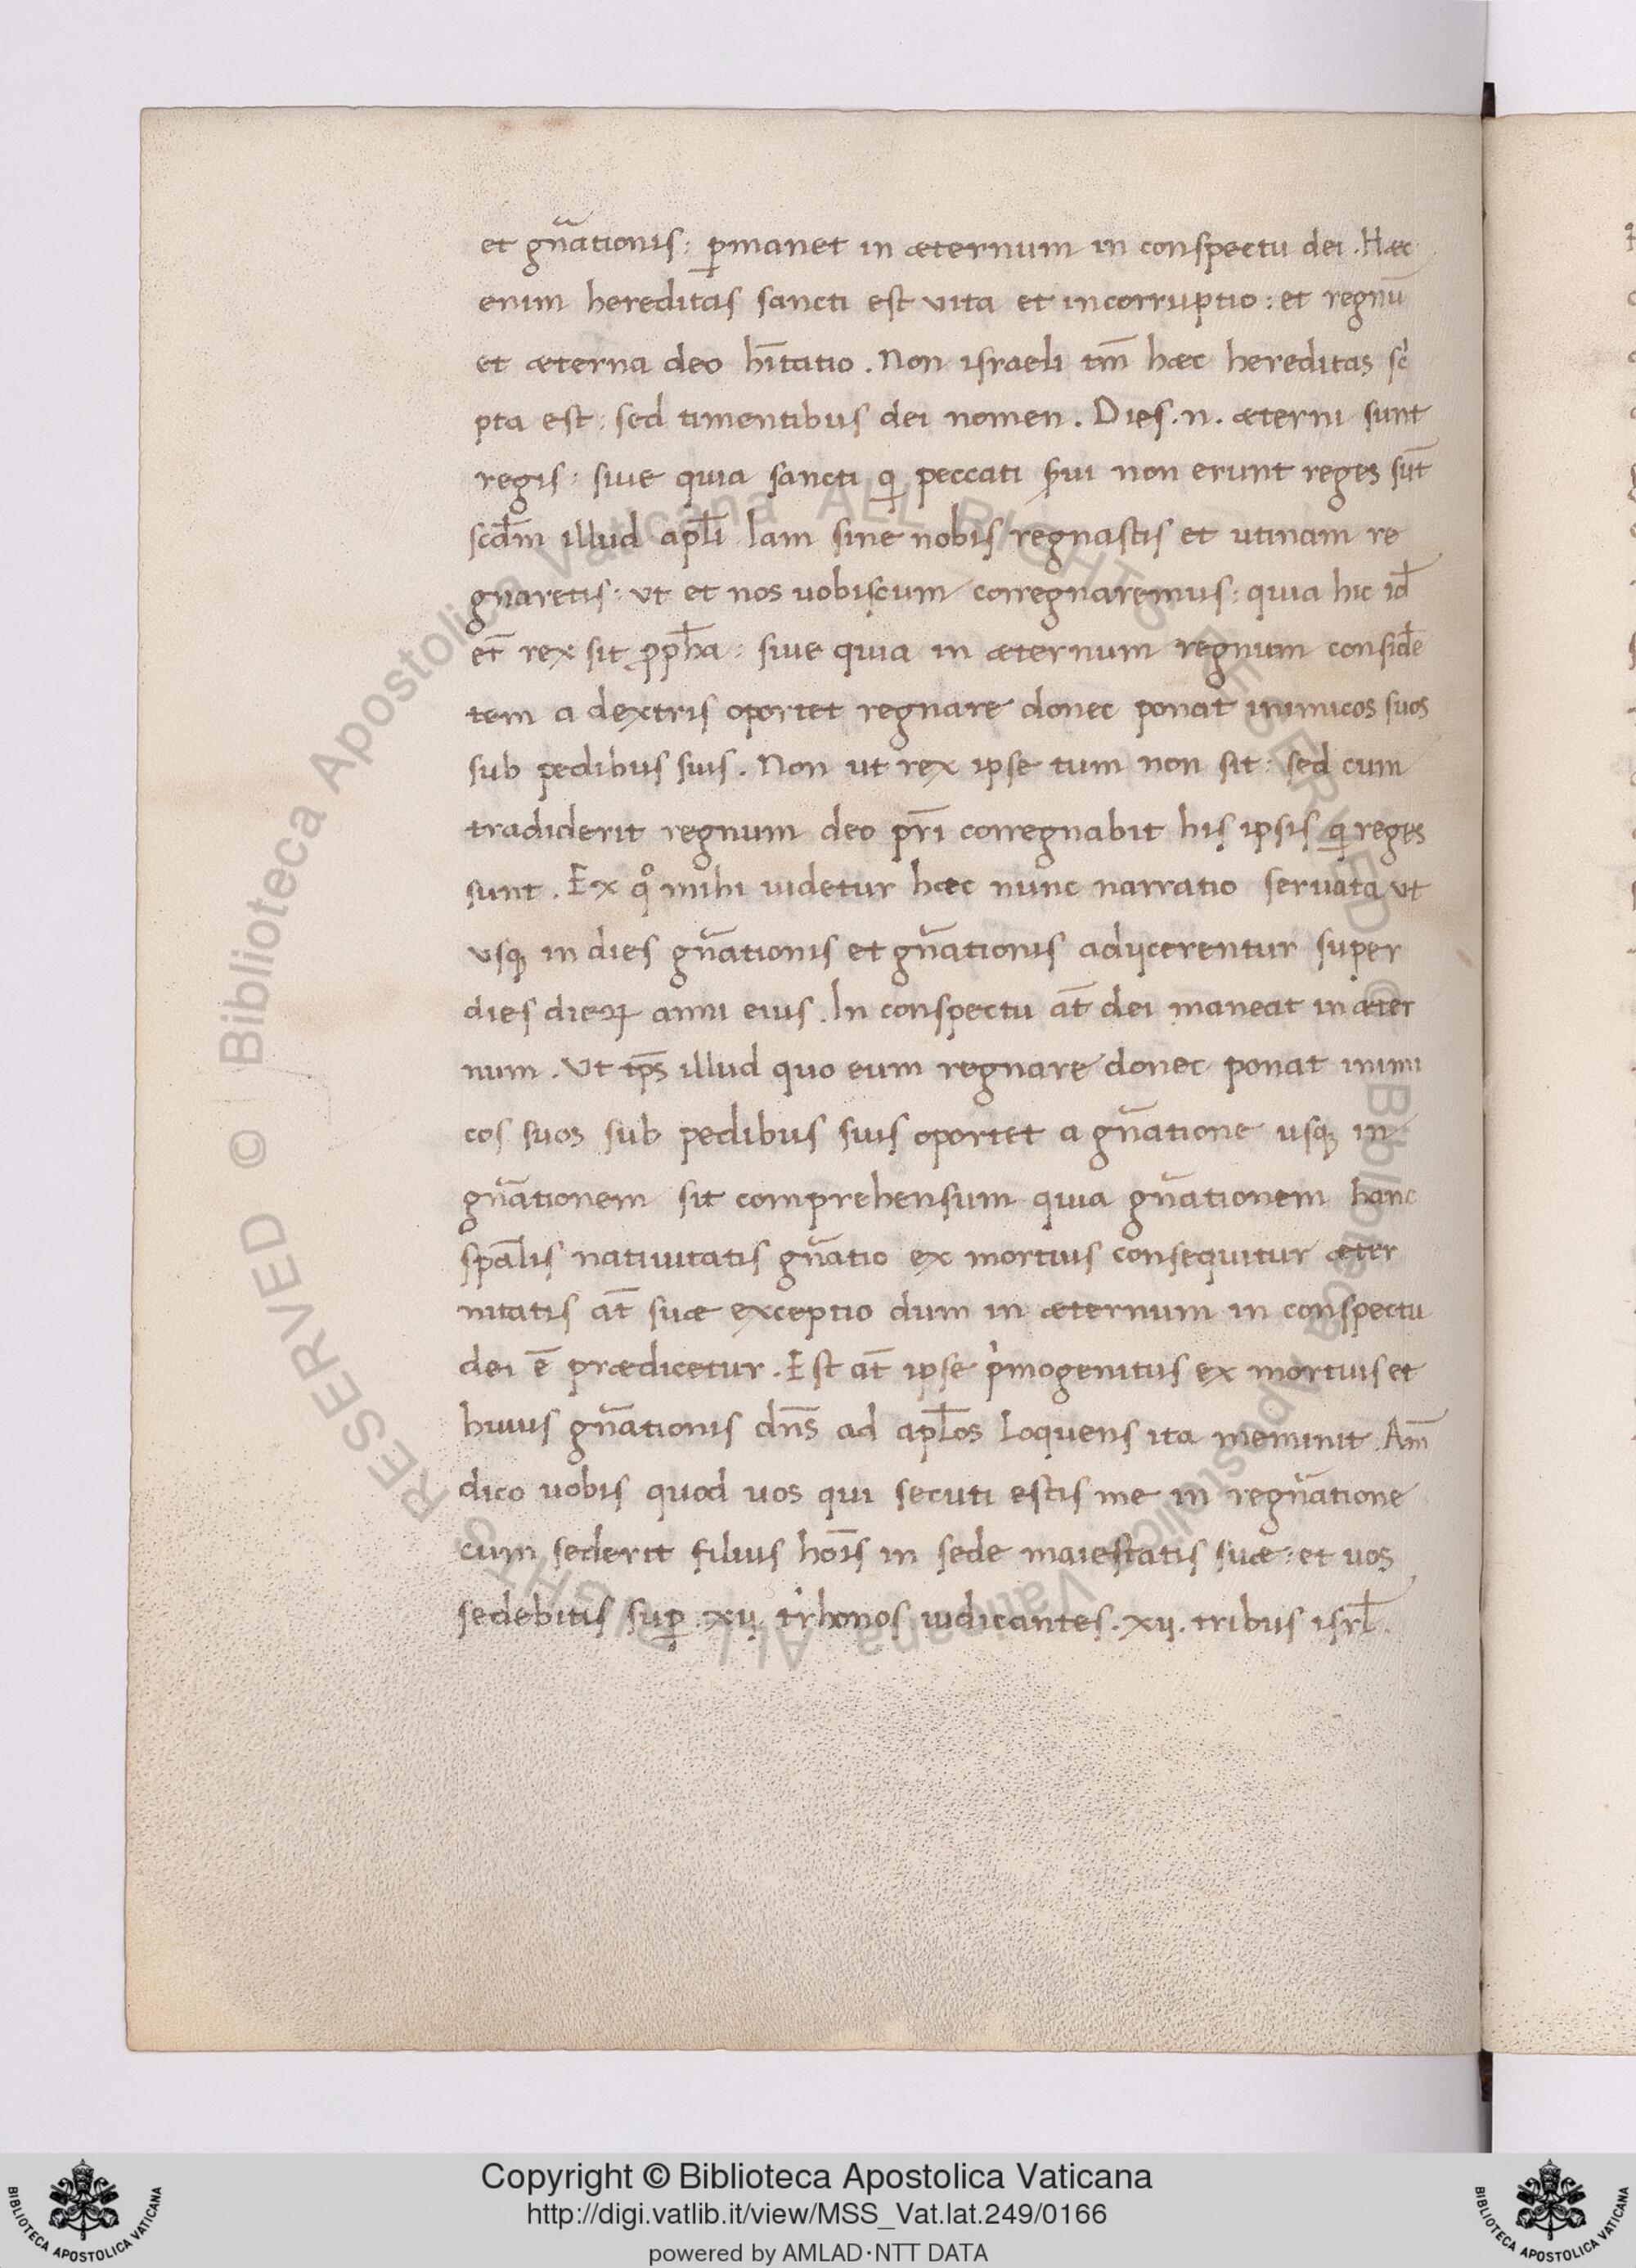 et gn̄ationis: ꝑmanet in æternum in conspectu dei. Hæc
enim hereditas sancti est vita et incorruptio: et regnū
et æterna deo hītatio. Non israeli tm̄ hæc hereditas sc̍
pta est: sed timentibus dei nomen. Dies .n. æterni sunt
regis: siue quia sancti qͥ peccati ẜui non erunt reges sūt
scd̄m illud apl̄i Iam sine nobis regnastis et utinam re
gnaretis: vt et nos uobiscum conregnaremus: quia hic id̄
et̄ rex sit ꝓph̄a: siue quia in æternum regnum consid̄e
tem a dextris oportet regnare donec ponat inimicos suos
sub pedibus suis. Non ut rex ipse tum non sit: sed cum
tradiderit regnum deo pr̄i conregnabit his ipsis qͥ reges
sunt. Ex qͦ mihi uidetur hæc nunc narratio seruata vt
vsqꝫ in dies gn̄ationis et gn̄ationis adijcerentur super
dies dieꝝ anni eius. In conspectu at̄ dei maneat in æter
num. Vt tp̄s illud quo eum regnare donec ponat inimi
cos suos sub pedibus suis oportet a gn̄atione usqꝫ in
gn̄ationem sit comprehensum quia gn̄ationem hanc
sp̄alis natiuitatis gn̄atio ex mortuis consequitur æter
nitatis at̄ suæ exceptio dum in æternum in conspectu
dei ē prædicetur. Est at̄ ipse pͥmogenitus ex mortuis et
huius gn̄ationis dn̄s ad apl̄os loquens ita meminit. Am̄
dico uobis quod uos qui secuti estis me in regn̄atione
cum sederit filius hoīs in sede maiestatis suæ: et uos
sedebitis suꝑ .xij. tʳhonos iudicantes .xij. tribus isrl̄.
Copyright © Biblioteca Apostolica Vaticana
http://digi.vatlib.it/view/MSS_Vat.lat.249/0166
powered by AMLAD·NTT DATA